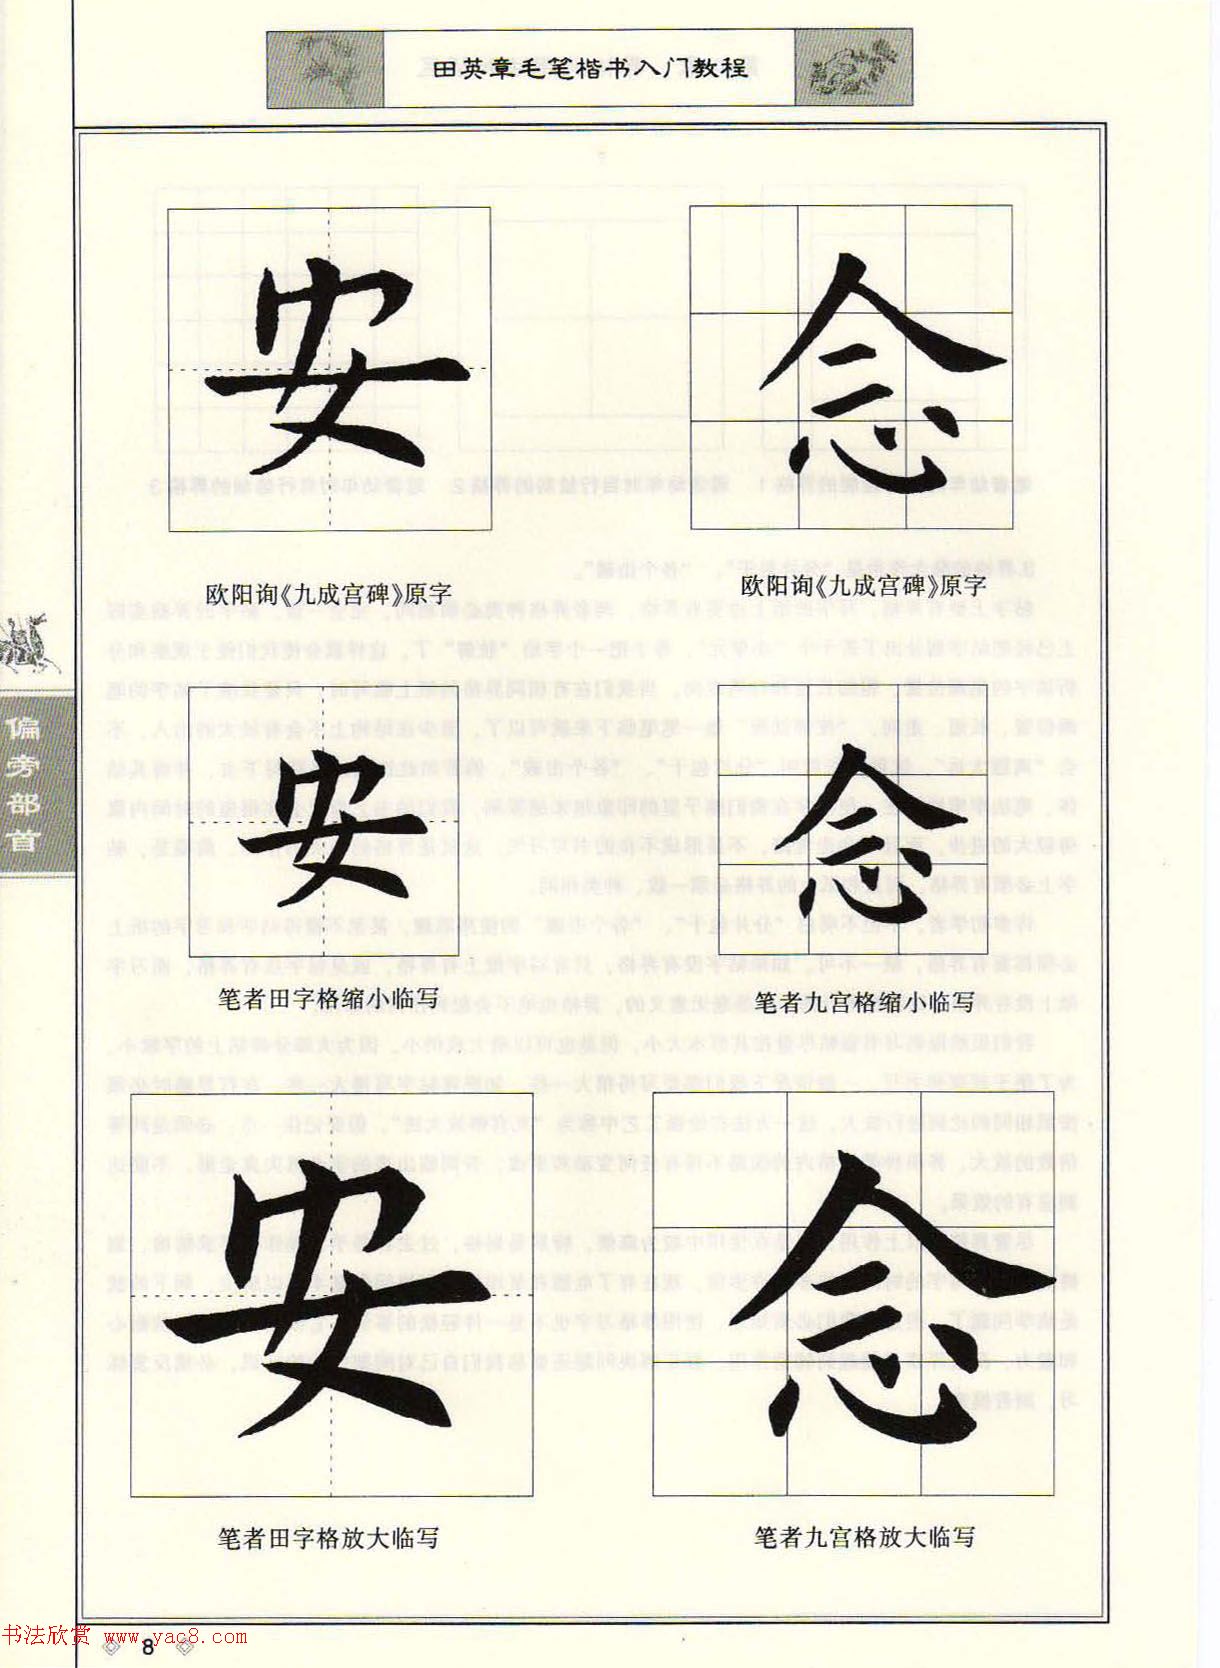 田英章毛笔楷书入门教程
安 念
欧阳询《九成宫碑》原字 欧阳询《九成宫碑》原字
偏旁部首
安 念
笔者田字格缩小临写 笔者九宫格缩小临写
安 念
笔者田字格放大临写 笔者九宫格放大临写
书法欣赏 www.yac8.com
8